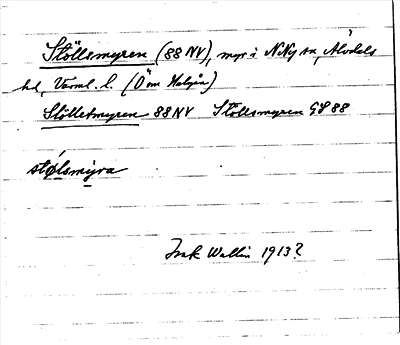 Stöllsmyren (88 NV), myr i N Ny sn, Älvdals
hd, Värml. l. (Ö om Halgån)
Stölletmyren 88 NV Stöllsmyren GS 88
stølsmyra
Isak Wallin 1913?